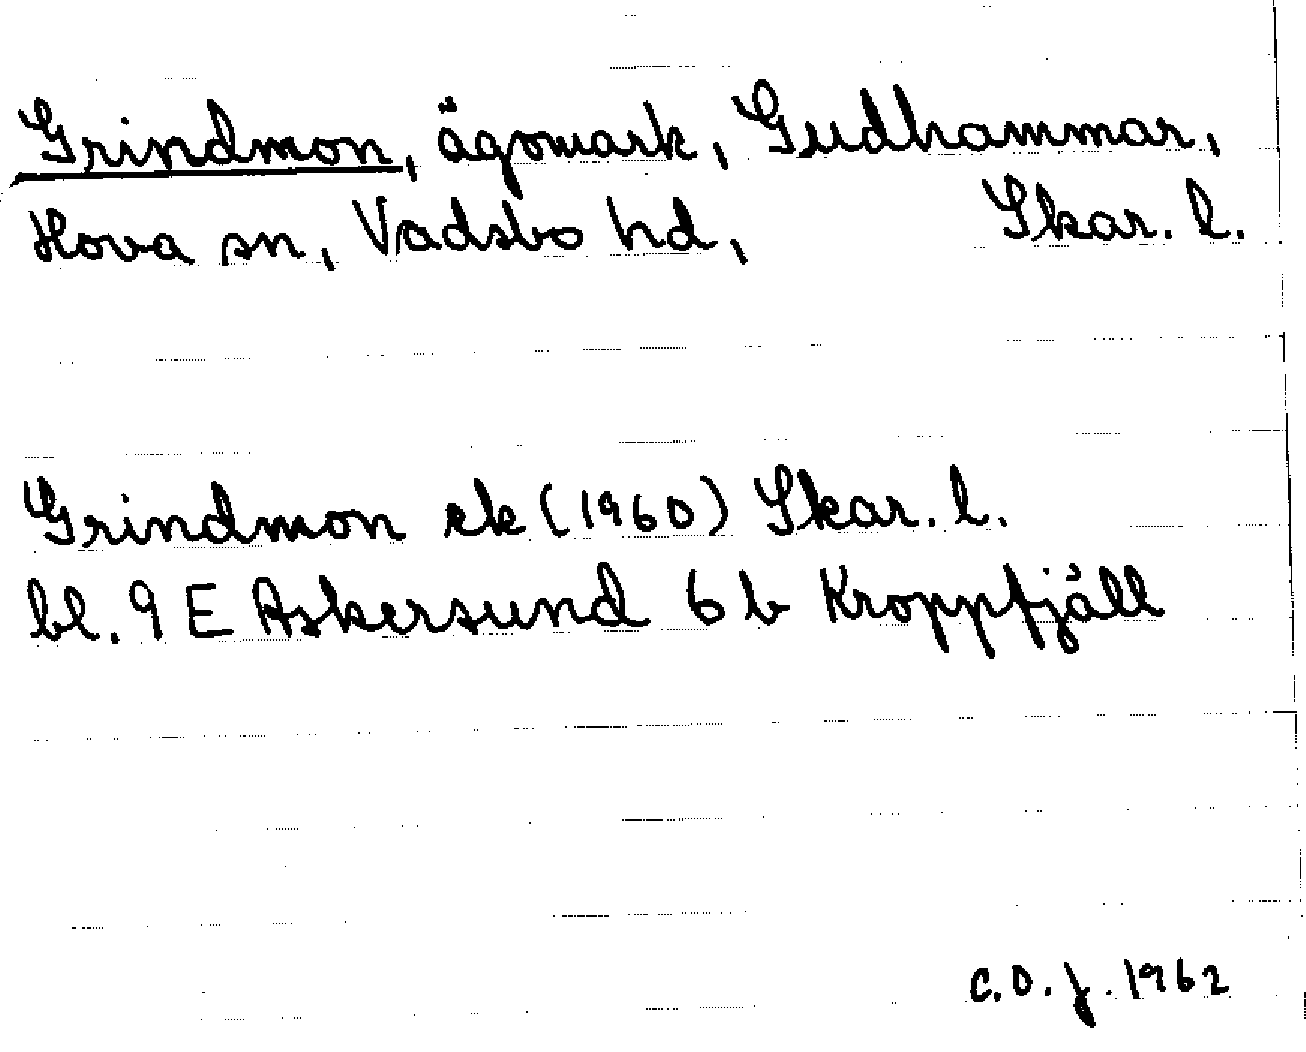 Grindmon, ägomark, Gudhammar,
Hova sn, Vadsbo hd, Skar. l.
Grindmon ek (1960) Skar. l.
bl. 9 E Askersund 6 b Kroppfjäll
C.O.J. 1962